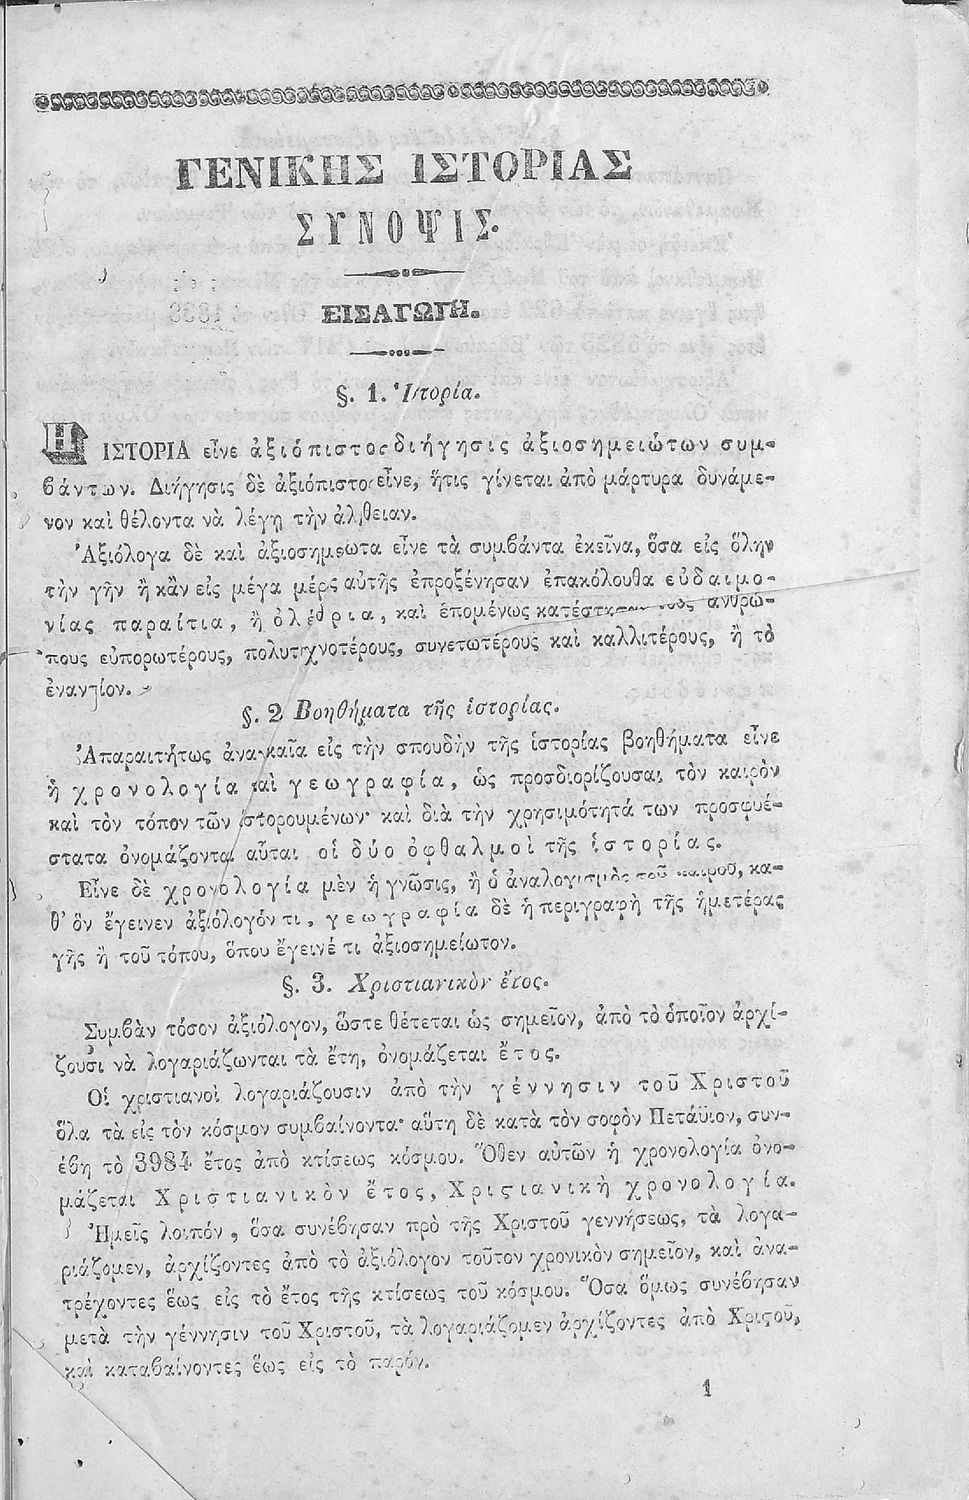 ΓΕΝΙΚΗΣ ΙΣΤΟΡΙΑΣ
ΣΥΝΟΨΙΣ.
ΕΙΣΑΓΩΓΗ.
§. 1. Ἱστορία.
Η ΙΣΤΟΡΙΑ εἶνε ἀξιόπιστος διήγησις ἀξιοσημειώτων συμ-
βάντων. Διήγησις δὲ ἀξιόπιστος εἶνε, ἥτις γίνεται ἀπὸ μάρτυρα δυνάμε-
νον καὶ θέλοντα νὰ λέγῃ τὴν ἀλήθειαν.
Ἀξιόλογα δὲ καὶ ἀξιοσημείωτα εἶνε τὰ συμβάντα ἐκεῖνα, ὅσα εἰς ὅλην
τὴν γῆν ἢ κἂν εἰς μέγα μέρος αὐτῆς ἐπροξένησαν ἐπακόλουθα εὐδαιμο-
νίας παραίτια, ἢ ὀλέθρια, καὶ ἑπομένως κατέστησαν τοὺς ἀνθρώ-
πους εὐπορωτέρους, πολυτεχνοτέρους, συνετωτέρους καὶ καλλιτέρους, ἢ τὸ
ἐναντίον.
§. 2 Βοηθήματα τῆς ἱστορίας.
Ἀπαραιτήτως ἀναγκαῖα εἰς τὴν σπουδὴν τῆς ἱστορίας βοηθήματα εἶνε
ἡ χρονολογία καὶ γεωγραφία, ὡς προσδιορίζουσαι τὸν καιρὸν
καὶ τὸν τόπον τῶν ἱστορουμένων· καὶ διὰ τὴν χρησιμότητά των προσφυέ-
στατα ὀνομάζονται αὗται οἱ δύο ὀφθαλμοὶ τῆς ἱστορίας.
Εἶνε δὲ χρονολογία μὲν ἡ γνῶσις, ἢ ὁ ἀναλογισμὸς τοῦ καιροῦ, κα-
θ' ὃν ἔγεινεν ἀξιόλογόν τι, γεωγραφία δὲ ἡ περιγραφὴ τῆς ἡμετέρας
γῆς ἢ τοῦ τόπου, ὅπου ἔγεινέ τι ἀξιοσημείωτον.
§. 3. Χριστιανικὸν ἔτος.
Συμβὰν τόσον ἀξιόλογον, ὥστε θέτεται ὡς σημεῖον, ἀπὸ τὸ ὁποῖον ἀρχί-
ζουσι νὰ λογαριάζωνται τὰ ἔτη, ὀνομάζεται ἔτος.
Οἱ χριστιανοὶ λογαριάζουσιν ἀπὸ τὴν γέννησιν τοῦ Χριστοῦ
ὅλα τὰ εἰς τὸν κόσμον συμβαίνοντα· αὕτη δὲ κατὰ τὸν σοφὸν Πετάϋιον, συν-
έβη τὸ 3984 ἔτος ἀπὸ κτίσεως κόσμου. Ὅθεν αὐτῶν ἡ χρονολογία ὀνο-
μάζεται Χριστιανικὸν ἔτος, Χριϛιανικὴ χρονολογία.
Ἡμεῖς λοιπόν, ὅσα συνέβησαν πρὸ τῆς Χριστοῦ γεννήσεως, τὰ λογα-
ριάζομεν, ἀρχίζοντες ἀπὸ τὸ ἀξιόλογον τοῦτον χρονικὸν σημεῖον, καὶ ἀνα-
τρέχοντες ἕως εἰς τὸ ἔτος τῆς κτίσεως τοῦ κόσμου. Ὅσα ὅμως συνέβησαν
μετὰ τὴν γέννησιν τοῦ Χριστοῦ, τὰ λογαριάζομεν ἀρχίζοντες ἀπὸ Χριϛοῦ,
καὶ καταβαίνοντες ἕως εἰς τὸ παρόν.
1